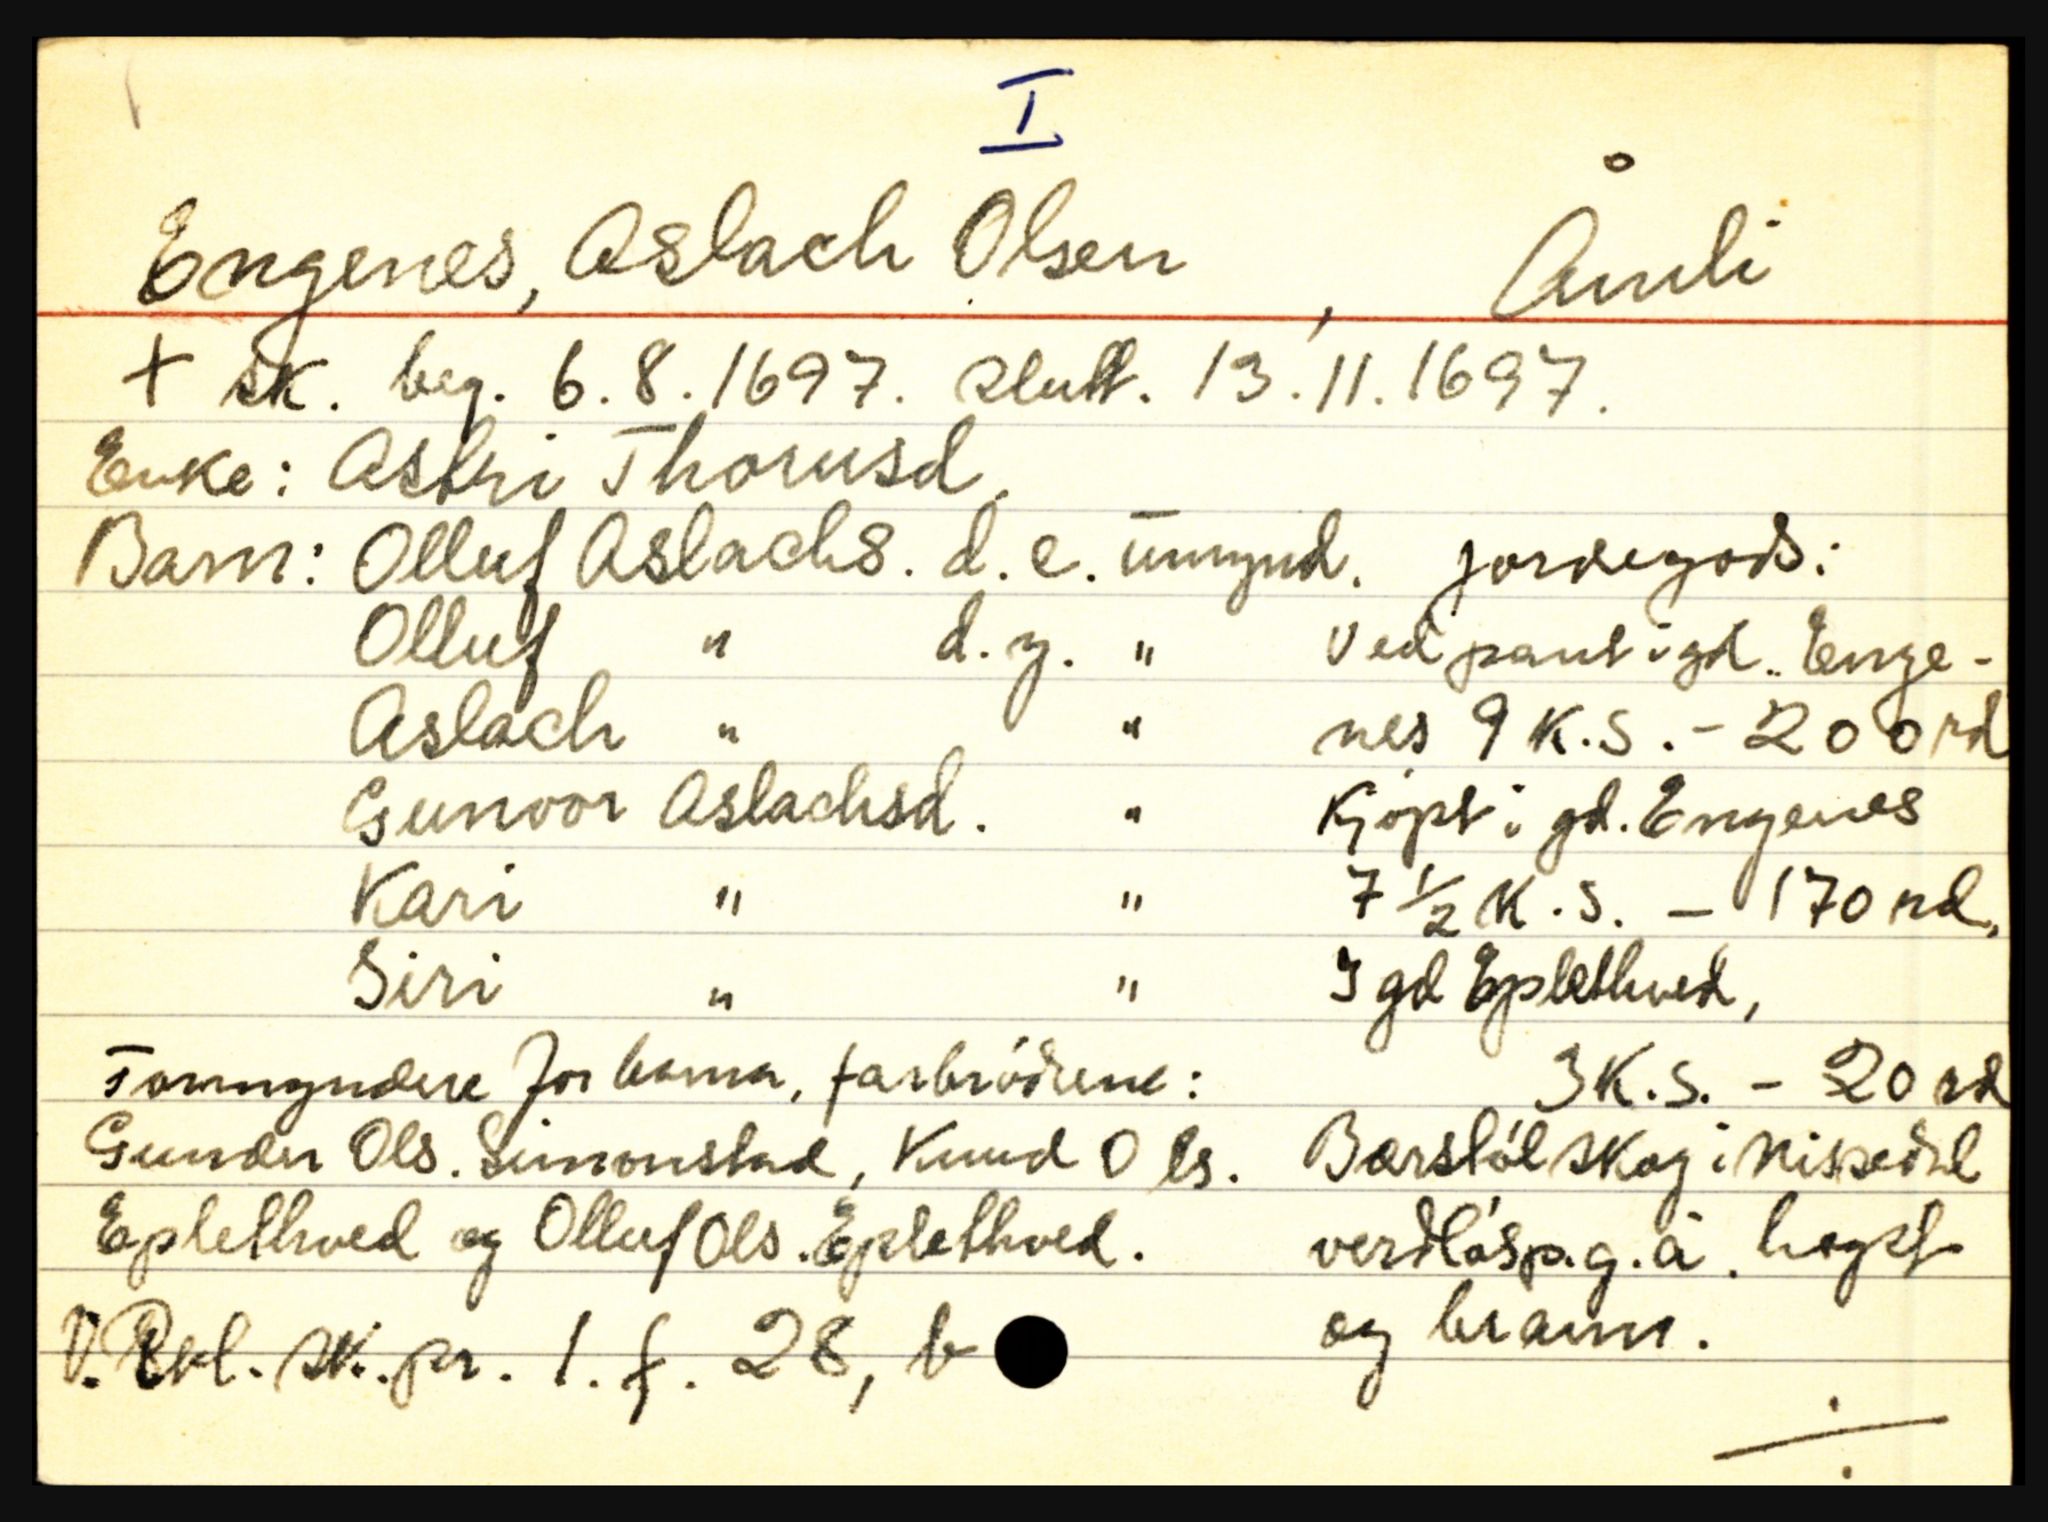 I
Engenes, Aslach Olsen, Åmli
+ sk. beg. 6.8.1697. slutt. 13.11.1697.
Enke: Astri Thorusd.
Barn: Olluf Aslachs. d. e. umynd.
Olluf " d. y. "
Aslach " "
Gunvor Aslachsd. "
Kari " "
Siri " "
Formyndere for barna, farbrödrene:
Gunder Ols. Simonstad, Knud Ols.
Eplethved og Olluf Ols. Eplethved.
V. Rkl. sk. pr. 1. f. 28, b
Jordegods:
Ved pant i gd. Enge-
nes 9 K.S. - 200 rd
Kjöpt i gd. Engenes
7 ½ K.S. - 170 rd.
I gd Eplethved,
3 K.S. - 20 rd
Barstöl skog i Nissedal
verdlös p.g.a. hogst
og brann.
÷